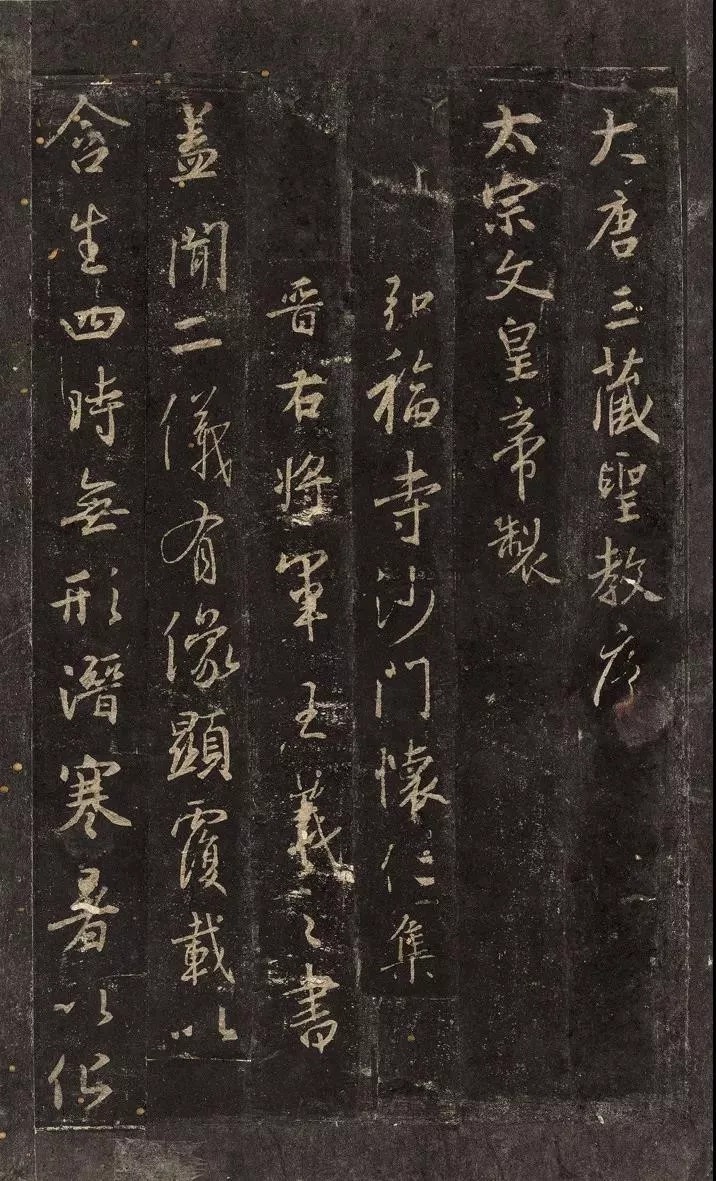 大唐三藏聖教序
太宗文皇帝製
弘福寺沙門懷仁集
晉右將軍王羲之書
蓋聞二儀有像顯覆載以
含生四時無形潛寒暑以化